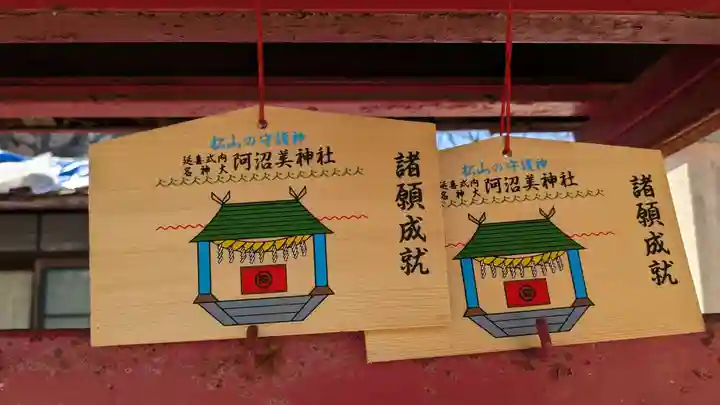 松山の守護神
延喜式内
名神大
阿沼美神社
諸願成就
松山の守護神
延喜式内
名神大
阿沼美神社
諸願成就